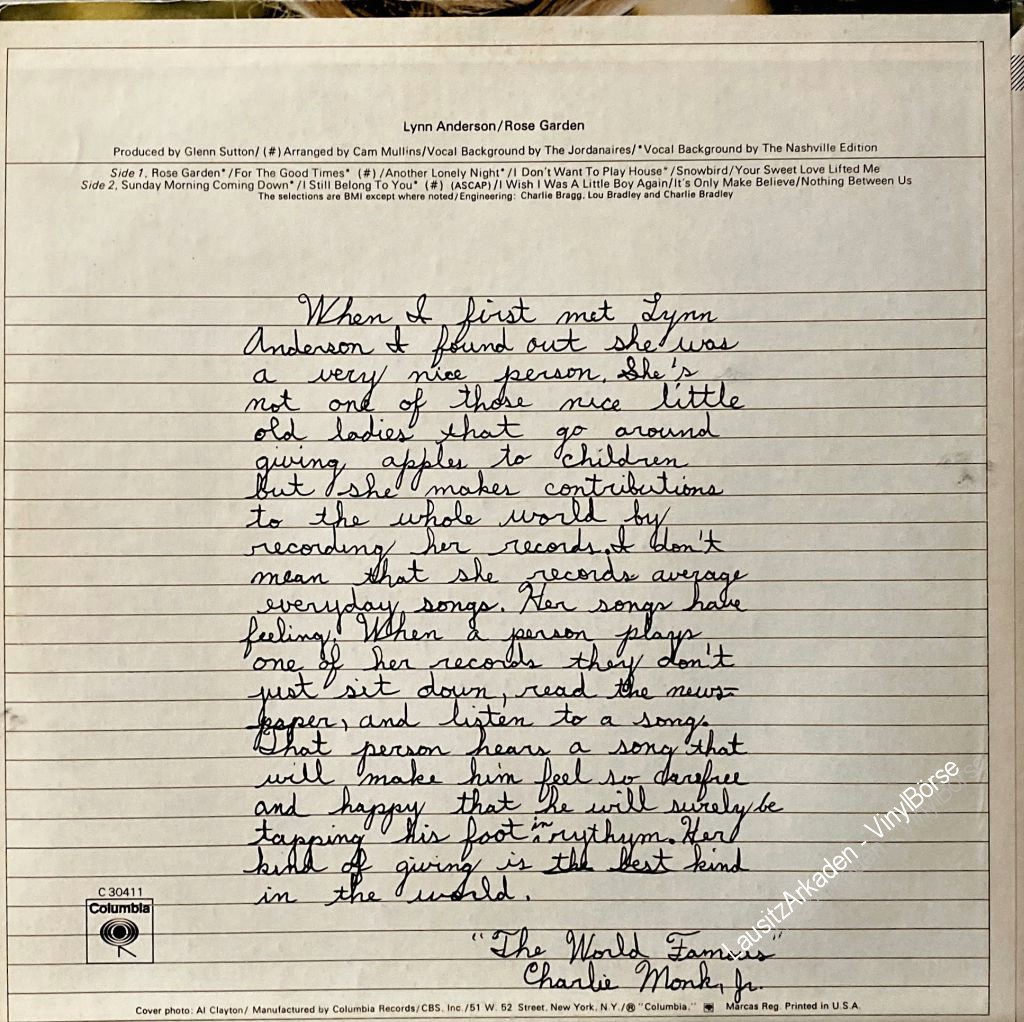 Lynn Anderson/Rose Garden
Produced by Glenn Sutton/(#)Arranged by Cam Mullins/Vocal Background by The Jordanaires/*Vocal Background by The Nashville Edition
Side 1, Rose Garden*/For The Good Times* (#)/Another Lonely Night*/I Don't Want To Play House*/Snowbird/Your Sweet Love Lifted Me
Side 2, Sunday Morning Coming Down*/I Still Belong To You* (#) (ASCAP)/I Wish I Was A Little Boy Again/It's Only Make Believe/Nothing Between Us
The selections are BMI except where noted/Engineering: Charlie Bragg, Lou Bradley and Charlie Bradley
When I first met Lynn
Anderson I found out she was
a very nice person. She's
not one of those nice little
old ladies that go around
giving apples to children
but she makes contributions
to the whole world by
recording her records. I don't
mean that she records average
everyday songs. Her songs have
feeling. When a person plays
one of her records they don't
just sit down, read the news=
paper, and listen to a song.
That person hears a song that
will make him feel so carefree
and happy that he will surely be
tapping his foot in rythym. Her
kind of giving is the best kind
in the world.
"The World Famous"
Charlie Monk, Jr.
C 30411
Columbia
Cover photo: Al Clayton/ Manufactured by Columbia Records/CBS, Inc./51 W. 52 Street, New York, N.Y./® "Columbia," Marcas Reg. Printed in U.S.A.
LausitzArkaden - VinylBörse